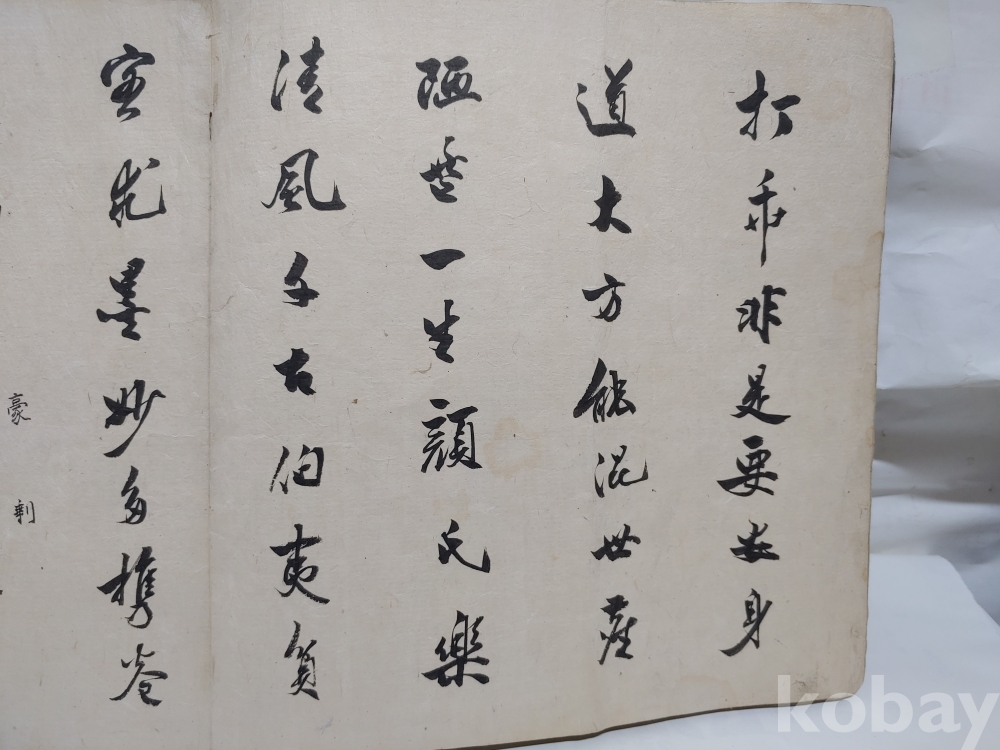 打乖非是要安身
道大方能混世塵
陋巷一生顔氏樂
清風千古伯夷貧
客求墨妙多携卷
豪
剩
kobay